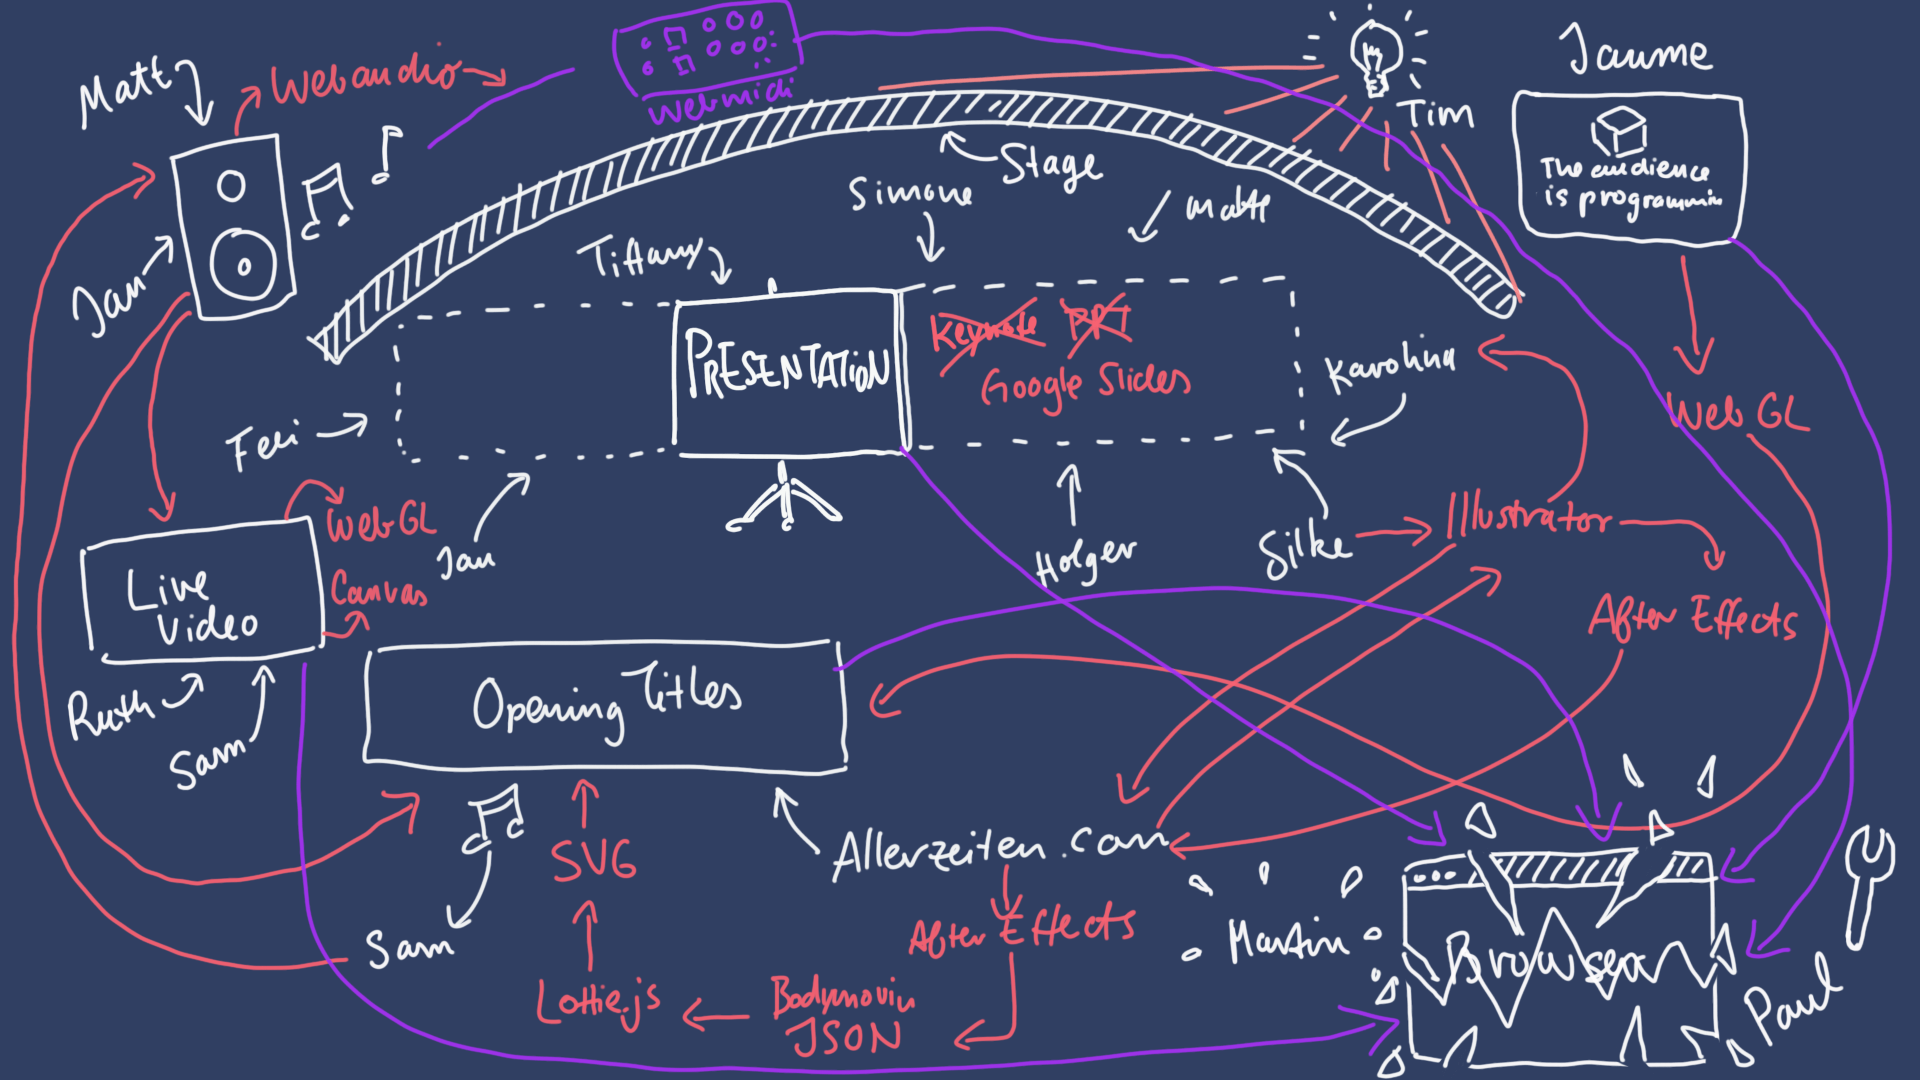 Matt
Webaudio
webmidi
Tim
Jaume
The audience
is programmin
Stage
Simone
Matt
Tiffany
Jan
PRESENTATION
Keynote PPT
Google Slides
Karolina
Web GL
Feri
Web GL
Canvas
Jan
Holger
Silke
Illustrator
After Effects
Live
Video
Ruth
Sam
Opening Titles
SVG
Allerzeiten.com
After Effects
Sam
Lottie.js
Bodymovin
JSON
Martin
Browser
Paul